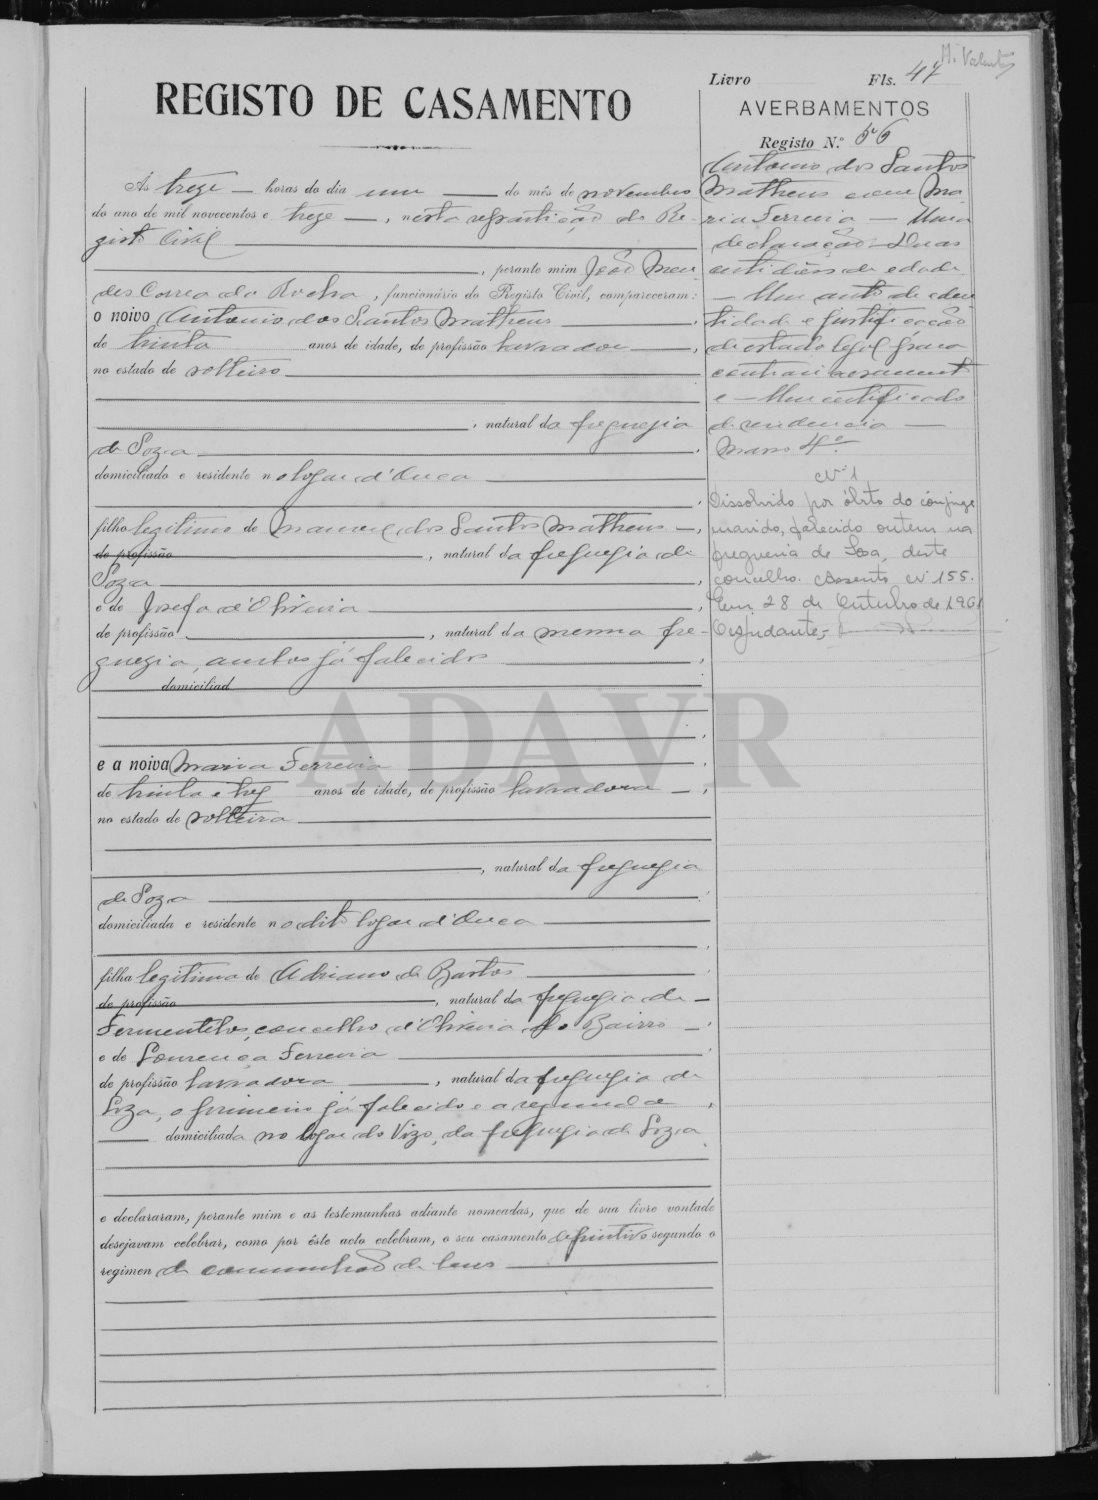 M. Valente
Livro Fls. 47
REGISTO DE CASAMENTO
AVERBAMENTOS
Registo N.º 56
Ás treze — horas do dia um — do mês de novembro
do ano de mil novecentos e treze —, nesta repartição do Re-
gisto Civil
, perante mim João Men-
des Correa da Rocha, funcionário do Registo Civil, compareceram:
o noivo Antonio dos Santos Matheus
de trinta anos de idade, de profissão lavrador —,
no estado de solteiro
, natural da freguezia
de Soza
domiciliado e residente no logar d'Ouca
filho legitimo de Manuel dos Santos Matheus —,
de profissão , natural da freguezia de
Soza
e de Josefa d'Oliveira
de profissão , natural da mesma fre-
guezia, ambos já falecidos
domiciliad
e a noiva Maria Ferreira
de trinta e trez anos de idade, de profissão lavradora —,
no estado de solteira
, natural da freguezia
de Soza
domiciliada e residente no dito logar d'Ouca
filha legitima de Adriano de Bastos
de profissão , natural da freguezia de —
Fermentelos, concelho d'Oliveira do Bairro —
e de Lourença Ferreira
de profissão lavradora —, natural da freguezia de
Soza, o primeiro já falecido e a segunda
— domiciliada no logar do Vizo, da freguezia de Soza
e declararam, perante mim e as testemunhas adiante nomeadas, que de sua livre vontade
desejavam celebrar, como por êste acto celebram, o seu casamento definitivo segundo o
regimen de communhão de bens
Antonio dos Santos
Matheus e Ma-
ria Ferreira — Uma
declaração — Duas
certidões de edade
— Um auto de iden-
tidade e justificação
de estado legal para
contrair casamento
e — Um certificado
de residencia —
Maço 4º
Nº 1
Dissolvido por óbito do cônjuge
marido, falecido ontem na
freguesia de Soza, deste
concelho. Assento nº 155.
Em 28 de Outubro de 1961
O ajudante,
ADAVR